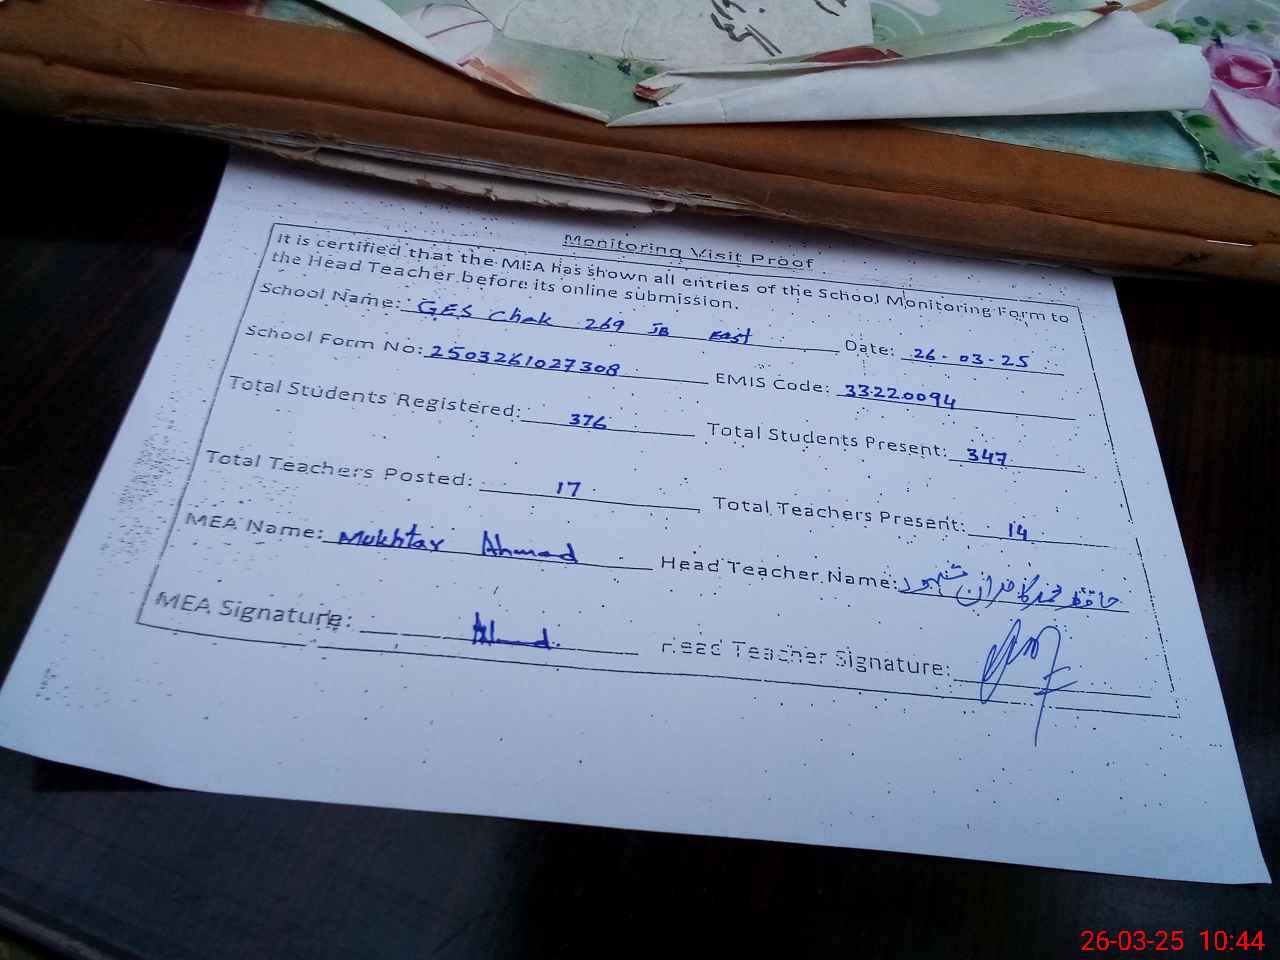 Monitoring Visit Proof
It is certified that the MEA has shown all entries of the School Monitoring Form to
the Head Teacher before its online submission.
School Name: GES Chak 269 JB East Date: 26-03-25
School Form No: 2503261027308 EMIS Code: 33220094
Total Students Registered: 376 Total Students Present: 347
Total Teachers Posted: 17 Total Teachers Present: 14
MEA Name: Mukhtar Ahmad Head Teacher Name: حافظ محمد کامران
MEA Signature: Head Teacher Signature:
26-03-25 10:44